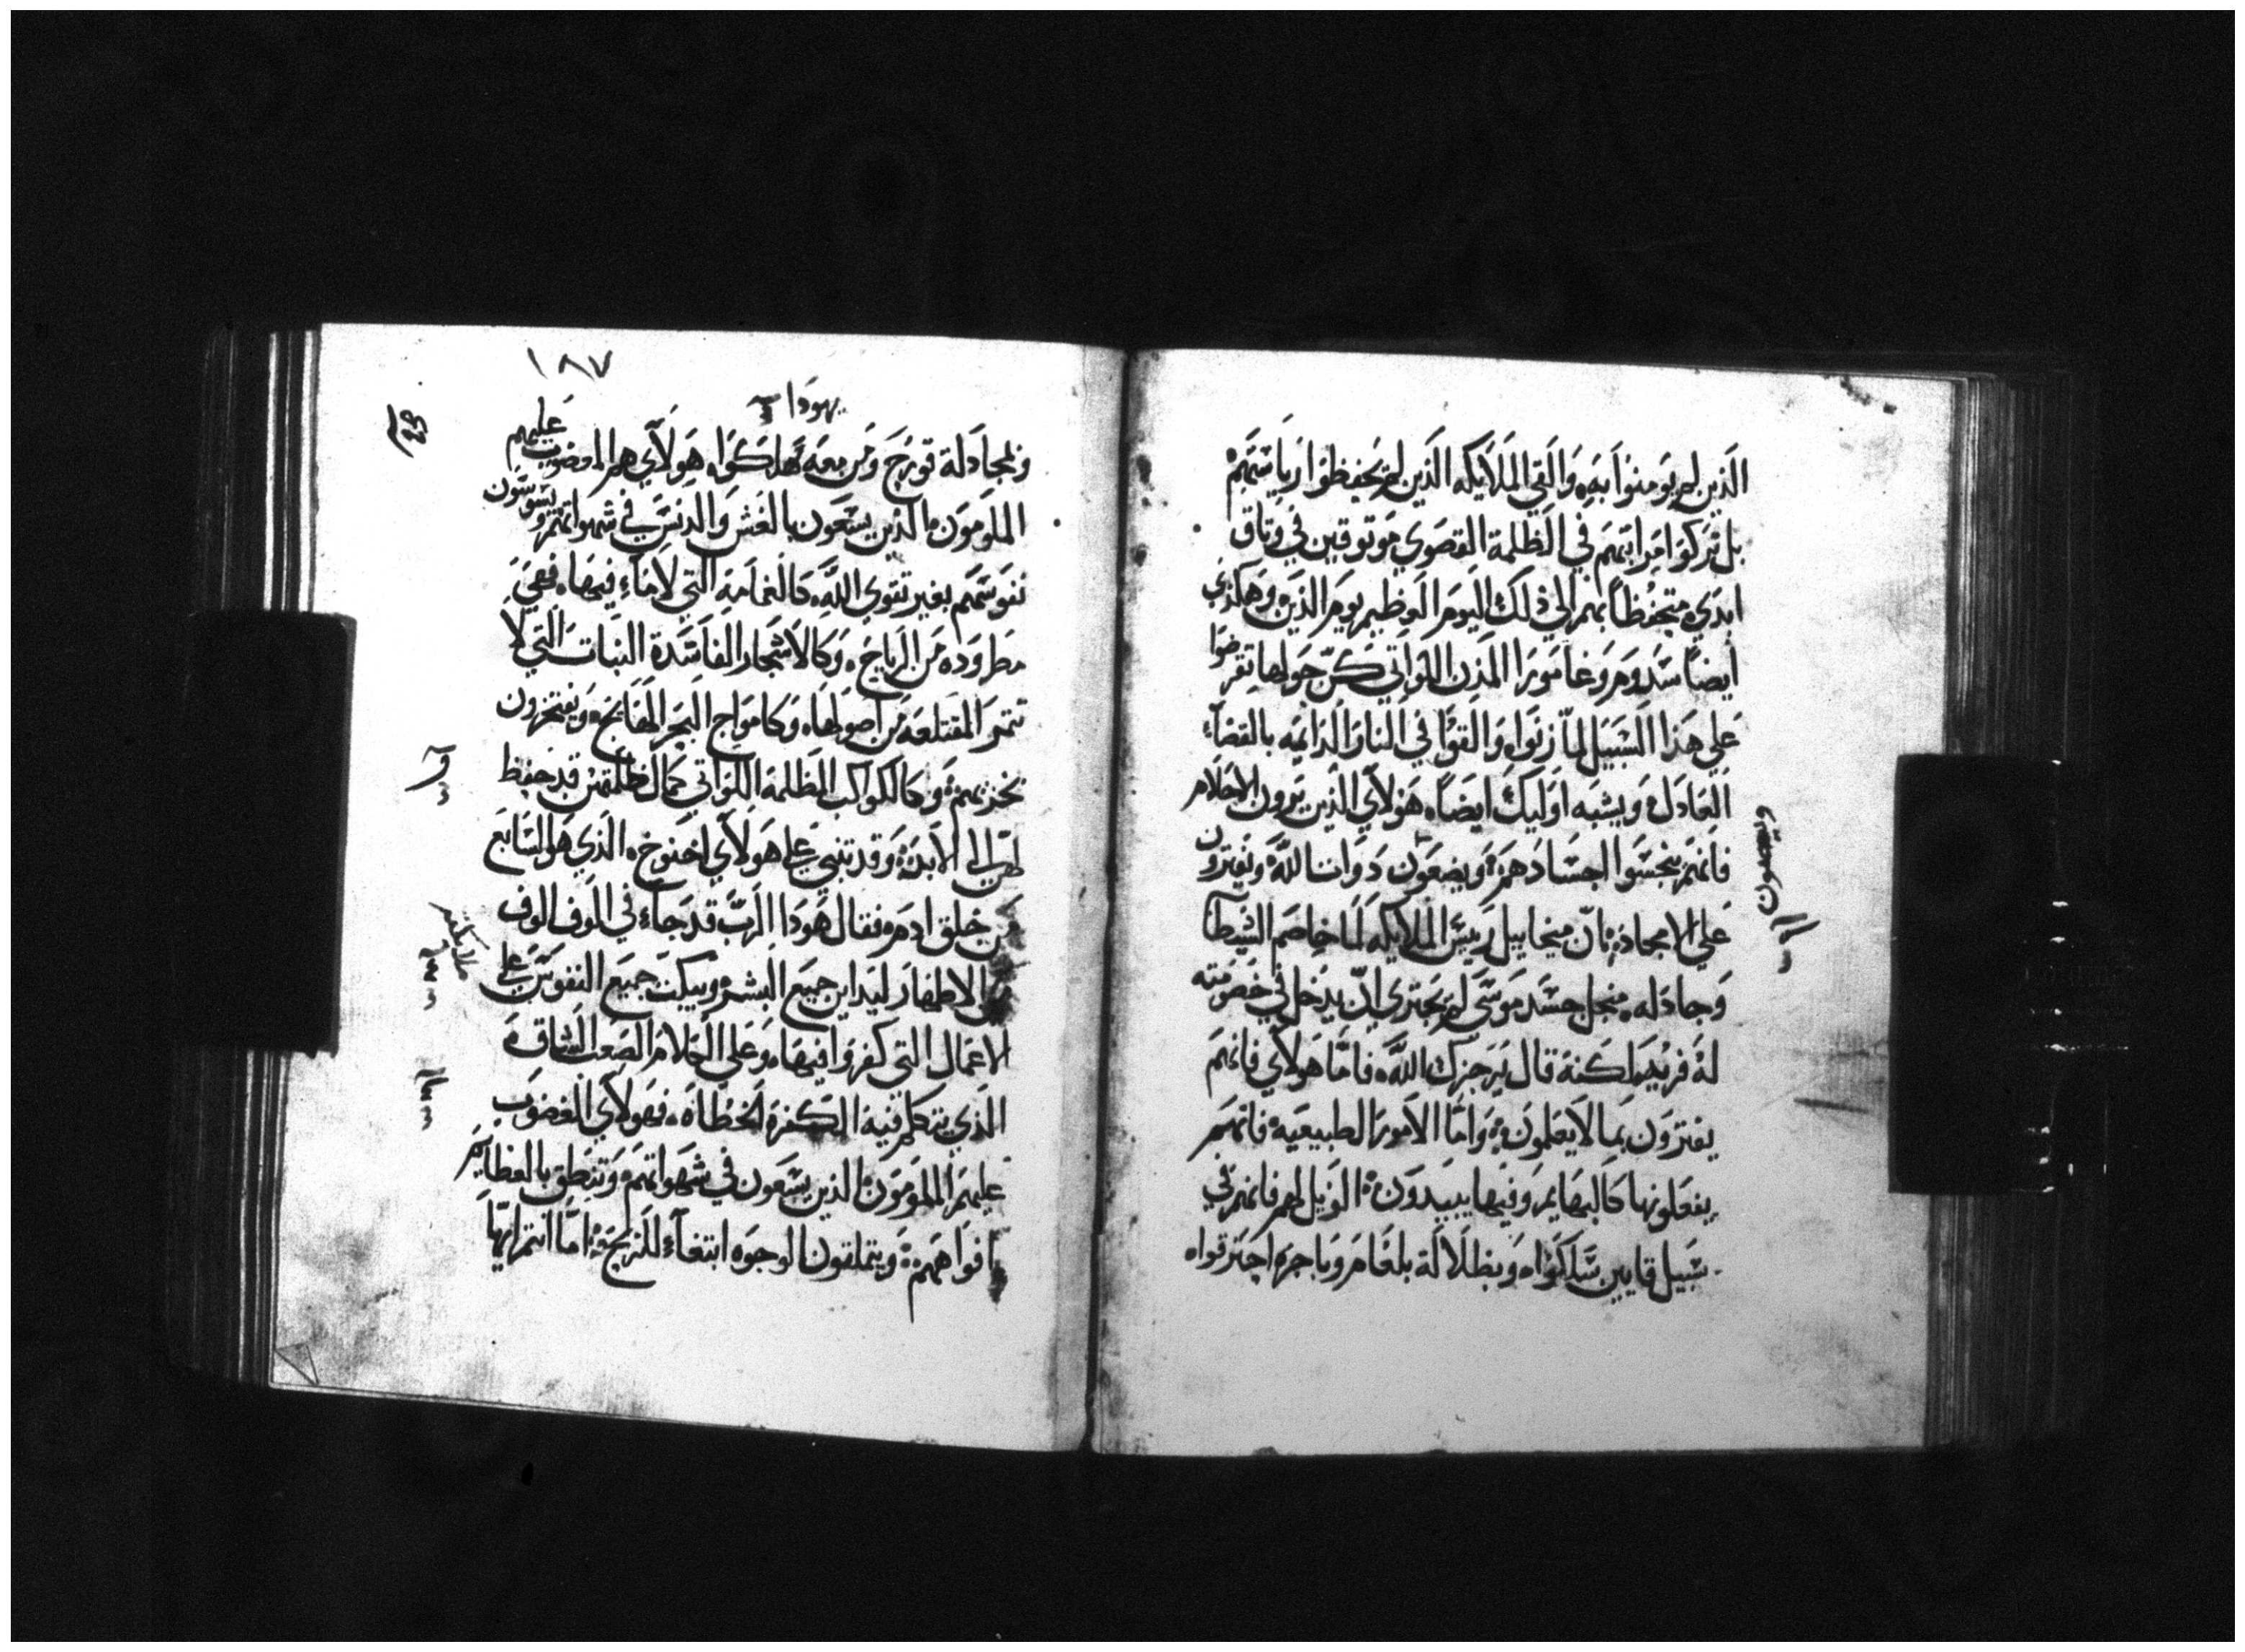 الذين لم يومنوا به والقي الملايكه الذين لم يحفظوا رياستهم
بل تركوا مراتبهم في الظلمة القصوي موتوقين في وتاق
ابدي متحفظا بهم الي ذلك اليوم العظيم يوم الدين وهكذي
ايضا سدوم وغامورا المدن اللواتي كن حولها تقرضوا
علي هذا السبيل لما زنوا والقوا في النار الدايمه بالقضاء
العادل ويشبه اوليك ايضا هولاي الذين يرون الاحلام
فانهم ينجسوا اجسادهم ويضعون دوات الله ويفترون
علي الامجاد بان ميخاييل رييس الملايكه لما خاصم الشيطان
وجادله منجل جسد موسي لم يجتري ان يدخل في خصومته
له فريه لكنه قال يزجرك الله فاما هولاي فانهم
يفترون بما لا يعلمون واما الامور الطبيعيه فانهم
يفعلونها كالبهايم وفيها يبيدون الويل لهم فانهم في
سبيل قايين سلكوا وبظلالة بلعام وباجره احترقوا
١٨٧
يهودا
وبمجادلة قورح ومن معه هلكوا هولاي هم المغضوب عليهم
الملومون الذين يسعون بالغش والدنس في شهواتهم ويسوسون
نفوسهم بغير تقوي الله كالغمامة التي لا ماء فيها فهي
مطروده من الرياح وكالاشجار الفاسدة النبات التي لا
تتمر المقتلعه من اصولها وكامواج البحر الهايج ويفتخرون
بخزيهم وكالكواكب المظلمة اللواتي كمال ظلمتهن قد حفظ
لهن الي الابد وقد تنبي علي هولاي اخنوخ الذي هو السابع
من خلق ادم فقال هودا الرب قد جاء في الوف الوف
ملايكته
الاطهار ليداين جميع البشر ويبكت جميع النفوس علي
الاعمال التي كفروا فيها وعلي الكلام الصعب الشاق
الذي تتكلم فيه الكفرة الخطاه فهولاي المغضوب
عليهم الملومون الذين يسعون في شهواتهم وتنطق بالعظايم
افواههم ويتملقون الوجوه ابتغاء للربح اما انتم ايها